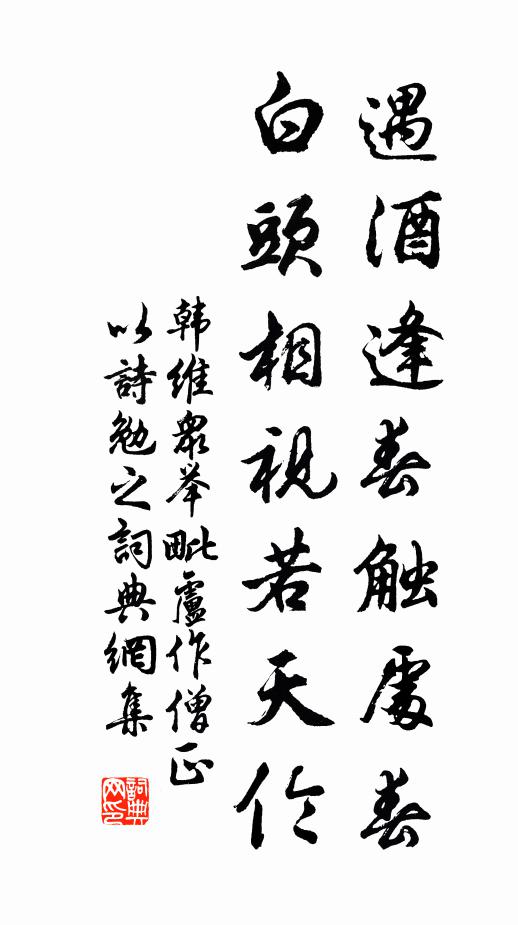 遇酒逢春触處春
白頭相視若天伦
韩維眾举毗盧作僧正
以詩勉之詞典網集
詞典网印